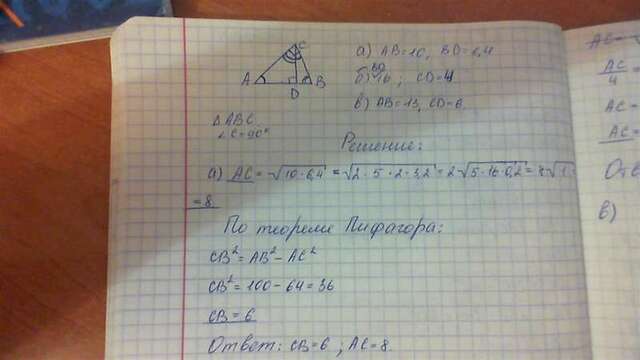 C
A
B
D
а) AB=10, BD=6,4
BD
б) 16; CD=4
в) AB=13, CD=6.
△ABC
∠C=90°
Решение:
а) AC=√10·6,4 = √2·5·2·3,2 = 2√5·16·0,2 = 8√1
=8
По теореме Пифагора:
CB²=AB²-AC²
CB²=100-64=36
CB=6
Ответ: CB=6; AC=8
AC
AC
4
AC=
AC=
Отв
в)